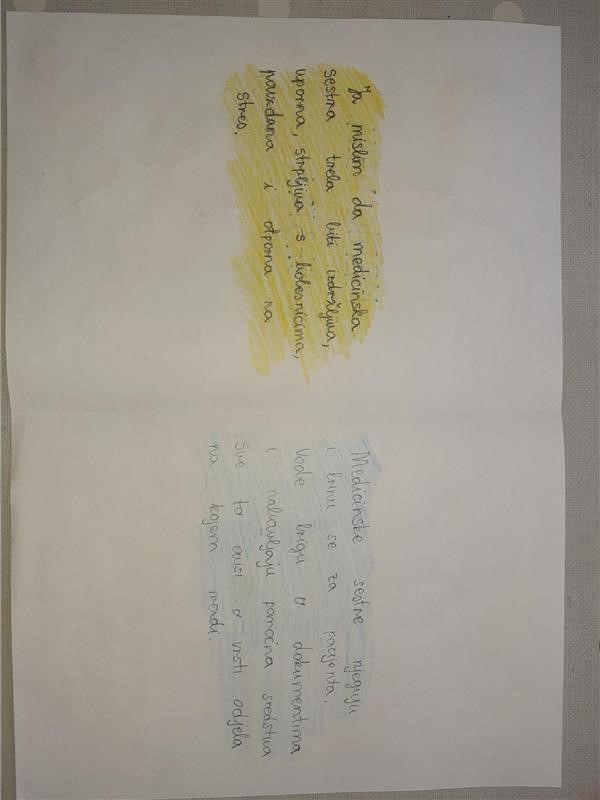 Ja mislim da medicinska
sestra treba biti izdržljiva,
uporna, strpljiva s bolesnicima,
pouzdana i otporna na
stres.
Medicinske sestre njeguju
i brinu se za pacijenta.
Vode brigu o dokumentima
i nabavljaju pomoćna sredstva.
Sve to ovisi o vrsti odjela
na kojem radi.